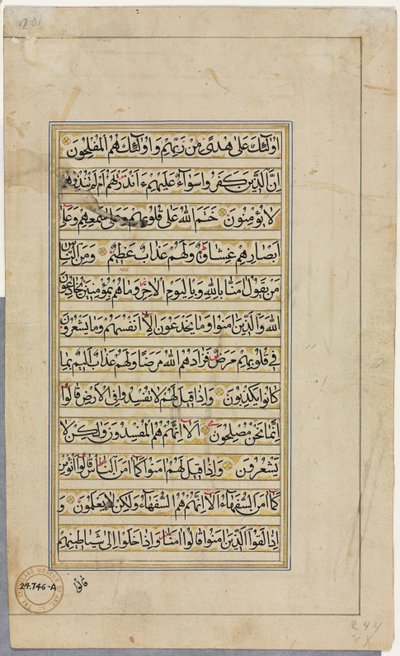 اُولٰٓئِكَ عَلٰى هُدًى مِنْ رَبِّهِمْ وَاُولٰٓئِكَ هُمُ الْمُفْلِحُونَ
اِنَّ الَّذِينَ كَفَرُوا سَوَآءٌ عَلَيْهِمْ ءَاَنْذَرْتَهُمْ اَمْ لَمْ تُنْذِرْهُمْ
لَا يُؤْمِنُونَ خَتَمَ اللّٰهُ عَلٰى قُلُوبِهِمْ وَعَلٰى سَمْعِهِمْ وَعَلٰى
اَبْصَارِهِمْ غِشَاوَةٌ وَلَهُمْ عَذَابٌ عَظِيمٌ وَمِنَ النَّاسِ
مَنْ يَقُولُ اٰمَنَّا بِاللّٰهِ وَبِالْيَوْمِ الْاٰخِرِ وَمَا هُمْ بِمُؤْمِنِينَ يُخَادِعُونَ
اللّٰهَ وَالَّذِينَ اٰمَنُوا وَمَا يَخْدَعُونَ اِلَّا اَنْفُسَهُمْ وَمَا يَشْعُرُونَ
فِي قُلُوبِهِمْ مَرَضٌ فَزَادَهُمُ اللّٰهُ مَرَضًا وَلَهُمْ عَذَابٌ اَلِيمٌ بِمَا
كَانُوا يَكْذِبُونَ وَاِذَا قِيلَ لَهُمْ لَا تُفْسِدُوا فِي الْاَرْضِ قَالُوا
اِنَّمَا نَحْنُ مُصْلِحُونَ اَلَا اِنَّهُمْ هُمُ الْمُفْسِدُونَ وَلٰكِنْ لَا
يَشْعُرُونَ وَاِذَا قِيلَ لَهُمْ اٰمِنُوا كَمَا اٰمَنَ النَّاسُ قَالُوا اَنُؤْمِنُ
كَمَا اٰمَنَ السُّفَهَآءُ اَلَا اِنَّهُمْ هُمُ السُّفَهَآءُ وَلٰكِنْ لَا يَعْلَمُونَ وَ
اِذَا لَقُوا الَّذِينَ اٰمَنُوا قَالُوا اٰمَنَّا وَاِذَا خَلَوْا اِلٰى شَيَاطِينِهِمْ
قالوا
29.746-A